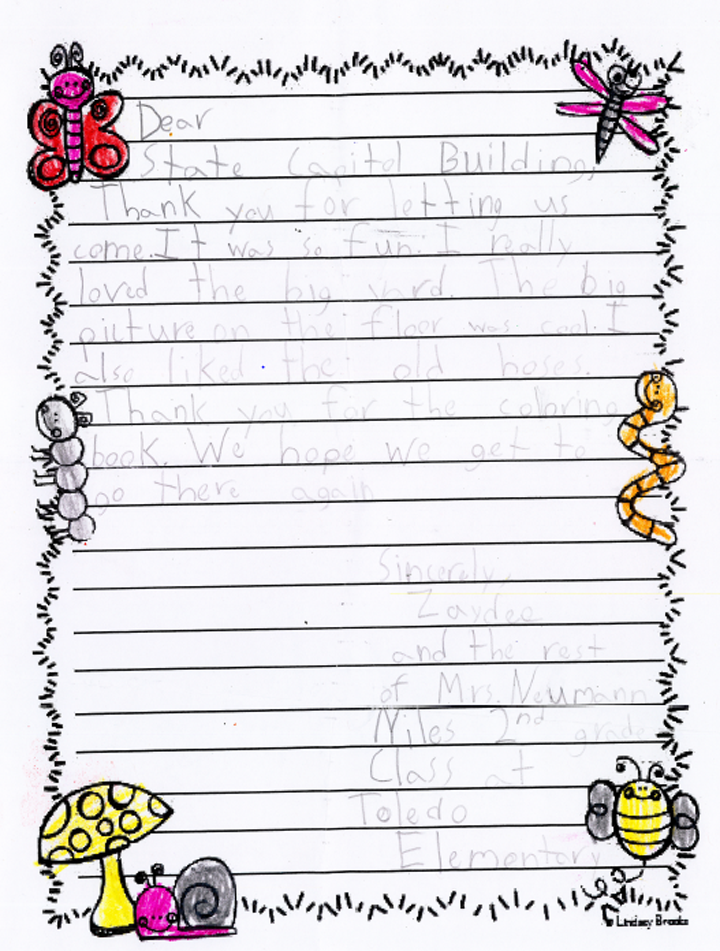 Dear
State Capitol Building,
Thank you for letting us
come. It was so fun. I really
loved the big yard. The big
picture on the floor was cool. I
also liked the old hoses.
Thank you for the coloring
book. We hope we get to
go there again
Sincerely,
Zaydee
and the rest
of Mrs. Neumann
Niles 2nd grade
Class at
Toledo
Elementary
© Lindsay Brooks